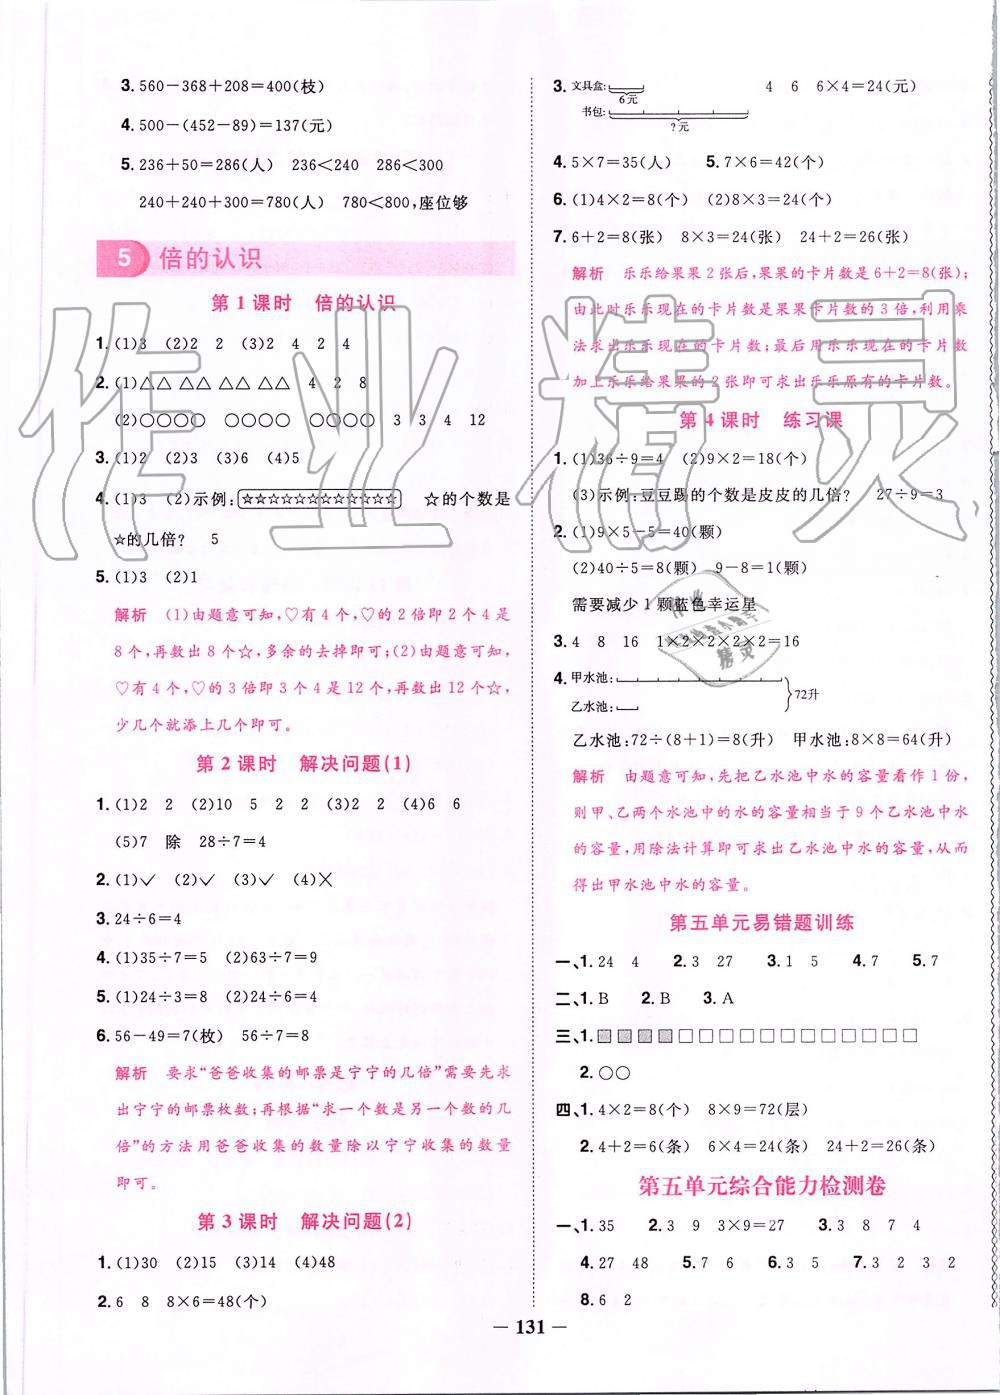 3. 560－368＋208＝400(枝)
4. 500－(452－89)＝137(元)
5. 236＋50＝286(人) 236＜240 286＜300
240＋240＋300＝780(人) 780＜800,座位够
5 倍的认识
第 1 课时 倍的认识
1. (1)3 (2)2 2 (3)2 4 2 4
2. (1)△△ △△ △△ △△ 4 2 8
(2)○○○○ ○○○○ ○○○○ 3 3 4 12
3. (1)2 (2)3 (3)6 (4)5
4. (1)3 (2)示例:☆☆☆☆☆☆☆☆☆☆☆☆ ☆的个数是
☆的几倍? 5
5. (1)3 (2)1
解析 (1)由题意可知,♡有 4 个,♡的 2 倍即 2 个 4 是
8 个,再数出 8 个☆,多余的去掉即可;(2)由题意可知,
♡有 4 个,♡的 3 倍即 3 个 4 是 12 个,再数出 12 个☆,
少几个就添上几个即可。
第 2 课时 解决问题(1)
1. (1)2 2 (2)10 5 2 2 (3)2 2 (4)6 6
(5)7 除 28÷7＝4
2. (1)✓ (2)✓ (3)✓ (4)✕
3. 24÷6＝4
4. (1)35÷7＝5 (2)63÷7＝9
5. (1)24÷3＝8 (2)24÷8＝3
6. 56－49＝7(枚) 56÷7＝8
解析 要求“爸爸收集的邮票是宁宁的几倍”需要先求
出宁宁的邮票枚数;再根据“求一个数是另一个数的几
倍”的方法用爸爸收集的数量除以宁宁收集的数量
即可。
第 3 课时 解决问题(2)
1. (1)30 (2)15 (3)14 (4)48
2. 6 8 8×6＝48(个)
3. 文具盒: 4 6 6×4＝24(元)
6元
书包:
?元
4. 5×7＝35(人) 5. 7×6＝42(个)
6. (1)4×2＝8(个) (2)8×3＝24(个)
7. 6＋2＝8(张) 8×3＝24(张) 24＋2＝26(张)
解析 乐乐给果果 2 张后,果果的卡片数是 6＋2＝8(张);
由此时乐乐现在的卡片数是果果卡片数的 3 倍,利用乘
法求出乐乐现在的卡片数;最后用乐乐现在的卡片数
加上乐乐给果果的 2 张即可求出乐乐原有的卡片数。
第 4 课时 练习课
1. (1)36÷9＝4 (2)9×2＝18(个)
(3)示例:豆豆踢的个数是皮皮的几倍? 27÷9＝3
2. (1)9×5－5＝40(颗)
(2)40÷5＝8(颗) 9－8＝1(颗)
需要减少 1 颗蓝色幸运星
3. 4 8 16 1×2×2×2×2＝16
4. 甲水池:
72升
乙水池:
乙水池:72÷(8＋1)＝8(升) 甲水池:8×8＝64(升)
解析 由题意可知,先把乙水池中水的容量看作 1 份,
则甲、乙两个水池中的水的容量相当于 9 个乙水池中水
的容量,用除法计算即可求出乙水池中水的容量,从而
得出甲水池中水的容量。
第五单元易错题训练
一、1. 24 4 2. 3 27 3. 1 5 4. 7 5. 7
二、1. B 2. B 3. A
三、1. ■■■■□□□□□□□□□□□□
2. ○○
四、1. 4×2＝8(个) 8×9＝72(层)
2. 4＋2＝6(条) 6×4＝24(条) 24＋2＝26(条)
第五单元综合能力检测卷
一、1. 35 2. 3 9 3×9＝27 3. 3 8 7 4
4. 27 48 5. 7 6 6. 3 5 7. 3 2 3 2
8. 6 2
— 131 —
作业精灵